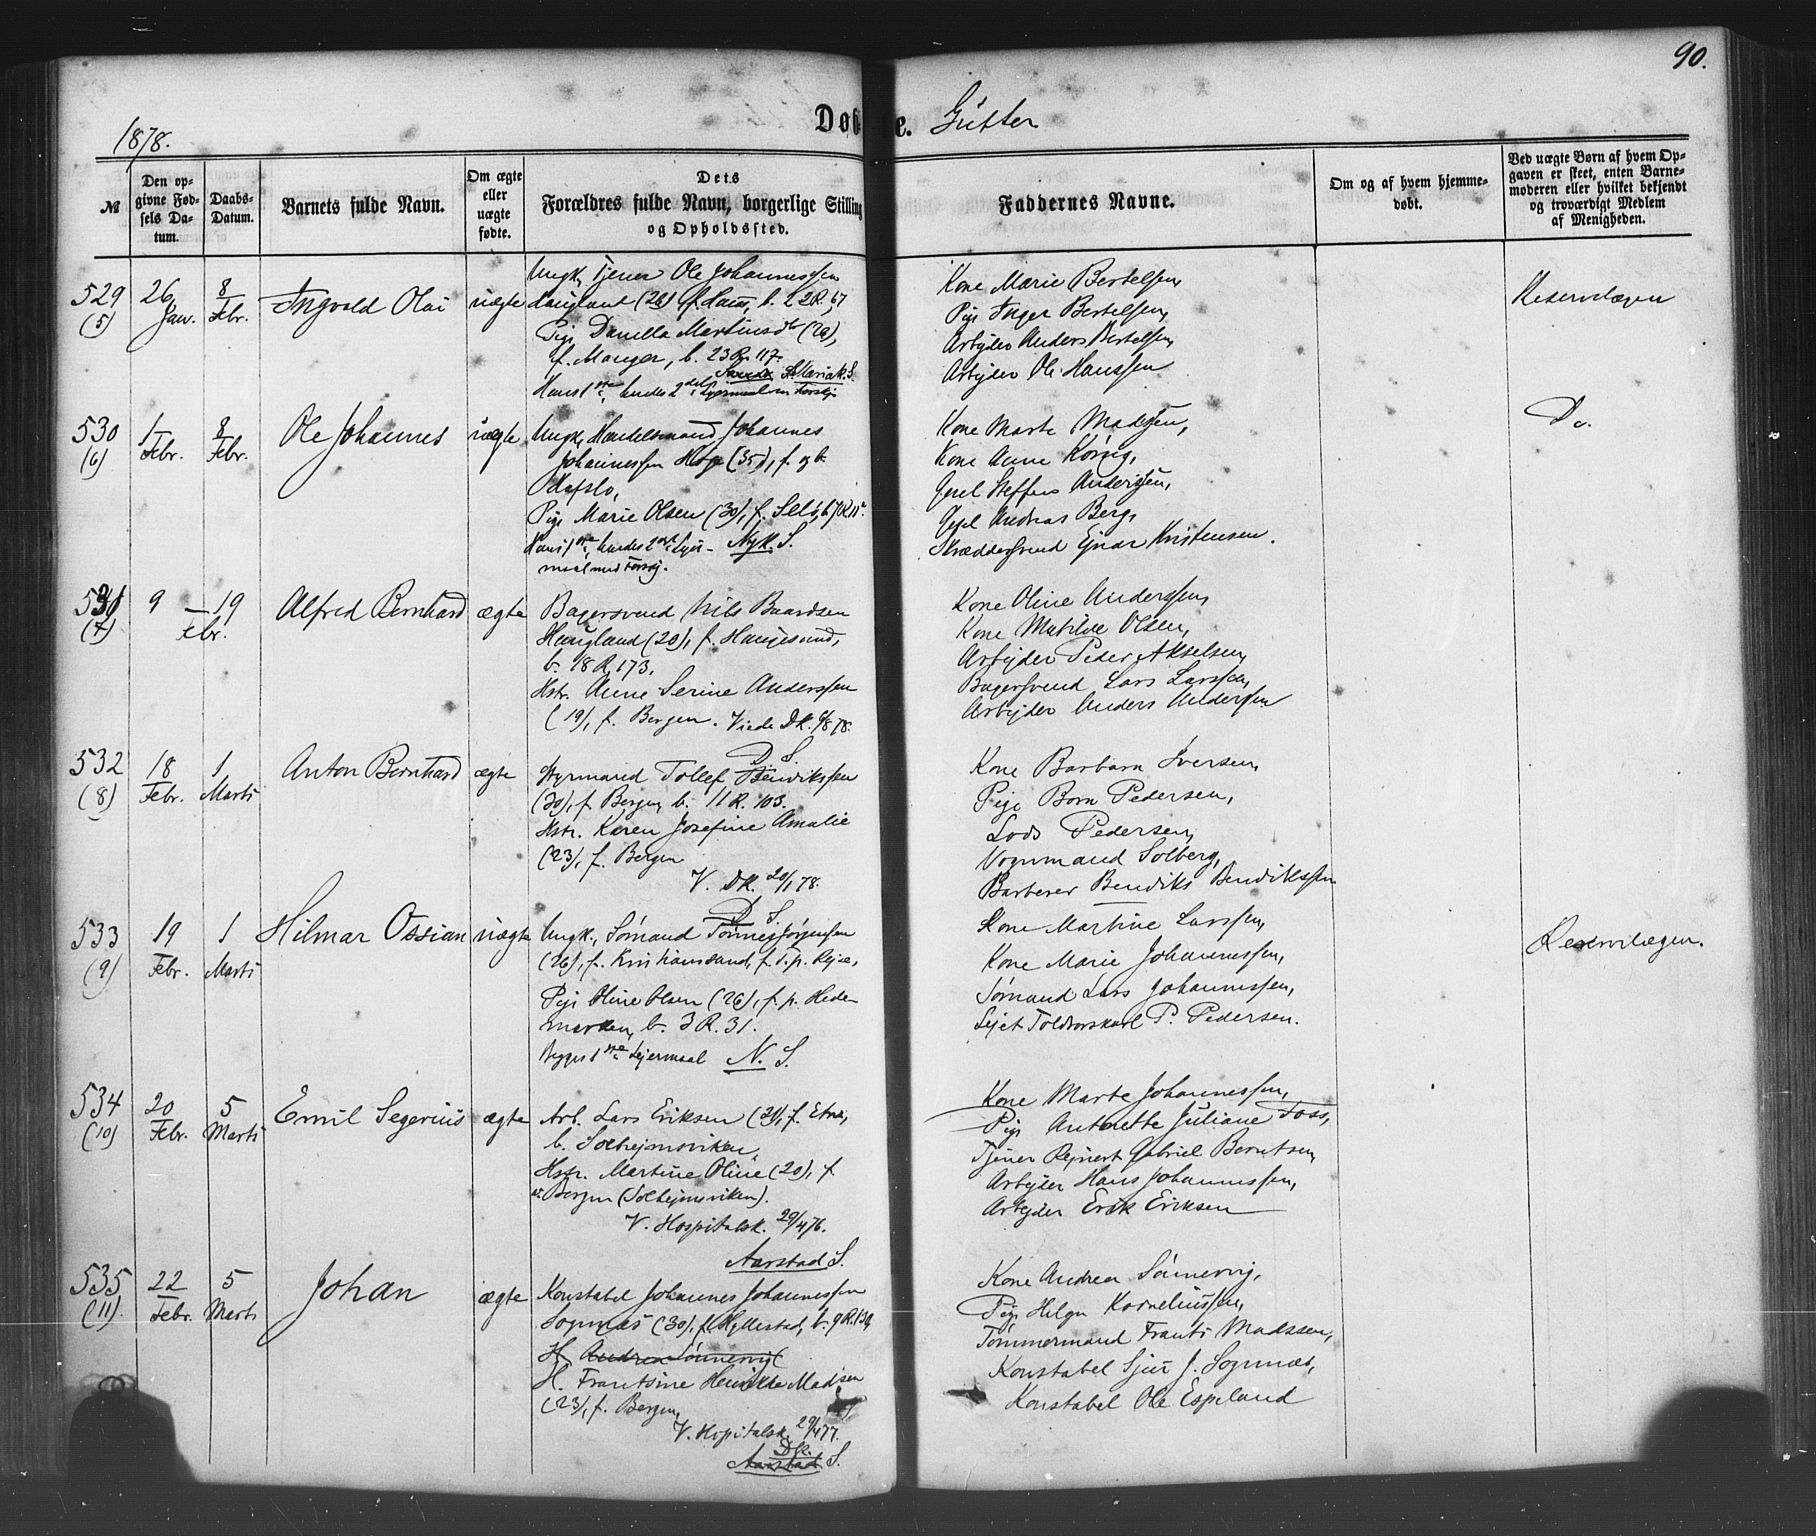 90.
1878.
Døb e. Gutter
№
Den opgivne Fødsels Datum.
Daabs-Datum.
Barnets fulde Navn.
Om ægte eller uægte fødte.
Dets
Forældres fulde Navn, borgerlige Stilling
og Opholdssted.
Faddernes Navne.
Om og af hvem hjemmedøbt.
Ved uægte Børn af hvem Opgaven er skeet, enten Barnemoderen eller hvilket bekjendt og troværdigt Medlem af Menigheden.
529
(5)
26 Jan.
8 Febr.
Ingvald Olai
uægte
Ungk. Tjener Ole Johannessen
Haugland (26) f. Haus, b. 22R. 67
Pige Danella Martinsdr (29),
f. Manger, b. 23R. 117.
Hans 1ste, hendes 2det Lejermaal
Kone Marie Bertelsen,
Pige Inger Bertelsen,
Arbejder Anders Bertelsen,
Arbejder Ole Hanssen
Reservelægen
530
(6)
1 Febr.
8 Febr.
Ole Johannes
uægte
Ungk. Handelsmand Johannes
Johannessen (35), f. og b.
Hafslo,
Pige Marie Olsen (30), f.
Hans 1ste, hendes 2det Lejer-
maal Nyk. S.
Kone Marte Madsen,
Kone Anne
Gesel Steffens Andersen,
Gesel Andreas Berg,
Skræddersvend Ejnar Kristensen.
Do.
531
(7)
9 – 19
Febr.
Alfred Bernhard
ægte
Bagersvend Nils Baardsen
Haugland (20), f. Haugesund,
b. 18 R. 173.
Hstr. Anne Serine Anderssen
(19), f. Bergen. Viede DK. 78.
D. S.
Kone Oline Anderssen,
Kone Matilde Olsen,
Arbejder Peder Akselsen,
Bagersvend Lars Larssen,
Arbejder Anders Andersen
532
(8)
18 Febr.
1 Marts
Anton Bernhard
ægte
Styrmand Tollef Bendikssen
(30), f. Bergen, b. 11 R. 103.
Hstr. Karen Josefine Amalie
(23), f. Bergen
V. DK. 20/1 78.
D. S.
Kone Barbara Iversen,
Pige Born Pedersen,
Lods Pedersen,
Vognmand Solberg,
Barberer Bendiks Bendikssen
533
(9)
19 Febr.
1 Marts
Hilmar Ossian
uægte
Ungk., Sømand Tønnes Jørgensen
(26), f. Kristianssand,
Pige Oline Olsen (26), f. p. Hede-
marken, b. 3 R. 31.
Begges 1ste Lejermaal N. S.
Kone Martine Larssen,
Kone Marie Johannessen,
Sømand Lars Johannessen,
P. Pedersen.
Reservelægen.
534
(10)
20 Febr.
5 Marts
Emil Segerius
ægte
Arb. Lars Eriksen (21), f. Etne,
b. Solhejmsviken,
Hstr. Martine Oline (20), f.
i Bergen (Solhejmsviken).
V. Hospitalsk. 29/4 76.
Aarstad S.
Kone Marte Johannessen,
Pige Antonette Juliane Foss,
Tjener Rejnert Gabriel Berntsen,
Arbejder Hans Johannessen,
Arbejder Erik Eriksen
535
(11)
22 Febr.
5 Marts
Johan
ægte
Konstabel Johannes Johannessen
Sognnæs (30), f. Hyllestad, b. 9 R. 139
H. Andrea Sønnevig
H. Frantsine Henrikke Madsen
(23), f. Bergen,
V. Hospitalsk. 29/4 77.
DK.
Aarstad S.
Kone Andrea Sønnevig,
Pige Helga Korneliussen,
Tømmermand Frants Madssen,
Konstabel Sjur J. Sognnæs,
Konstabel Ole Espeland